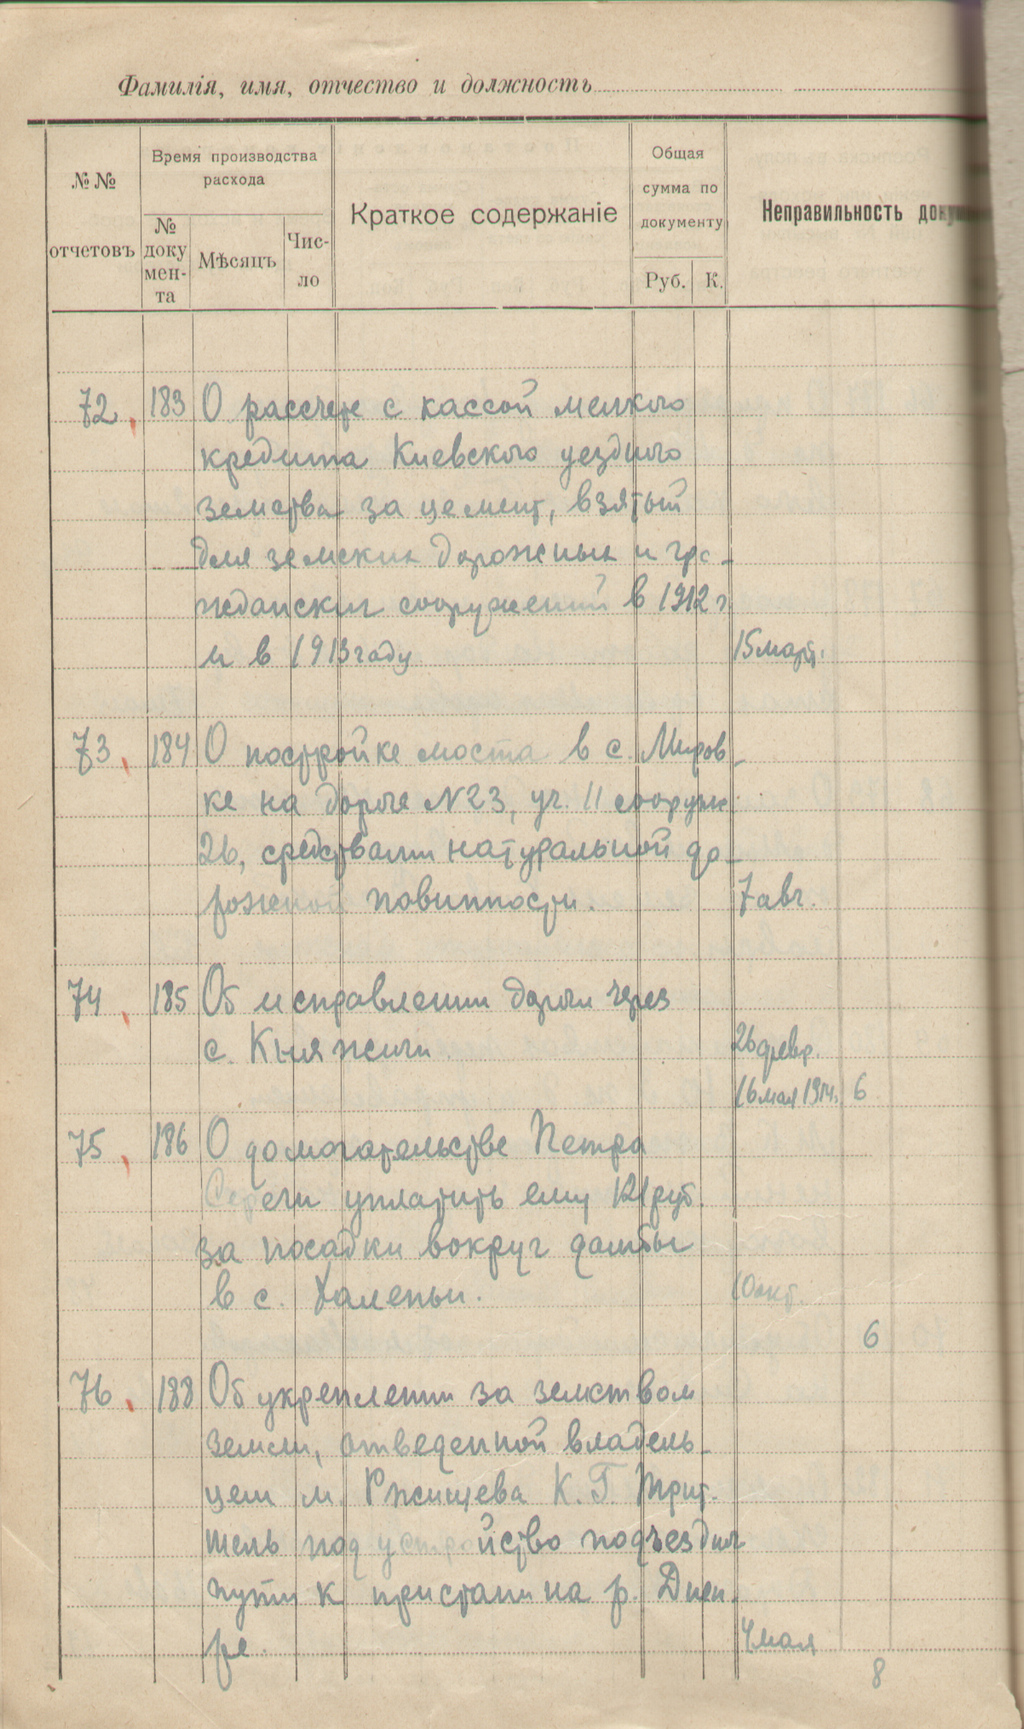 Фамилія, имя, отчество и должность
№№ отчетовъ
Время производства расхода
№ доку мен- та
Мѣсяцъ
Чис- ло
Краткое содержаніе
Общая сумма по документу
Руб. К.
Неправильность
72, 183 О рассчете с кассой мелкого
кредита Киевского уездного
земства за цемент, взятый
для земских дорожных и гра-
жданских сооружений в 1912 г
и в 1913 году 15 март.
73, 184 О постройке моста в с. Миров-
ке на дороге №23, уч. II сооруж.
26, средствами натуральной до-
рожной повинности. 7 авг.
74, 185 Об исправлении дороги через
с. Княжичи 26 февр.
16 мая 1914. 6
75, 186 О домогательстве Петра
уплатить ему 121 руб.
за посадки вокруг дамбы
в с. Халепьи. 10 окт.
6
76, 188 Об укреплении за земством
земли, отведенной владель-
цем м. Ржищева К. Г.
под устройство подъездных
пути к пристани на р. Днеп-
ре. 4 мая
8